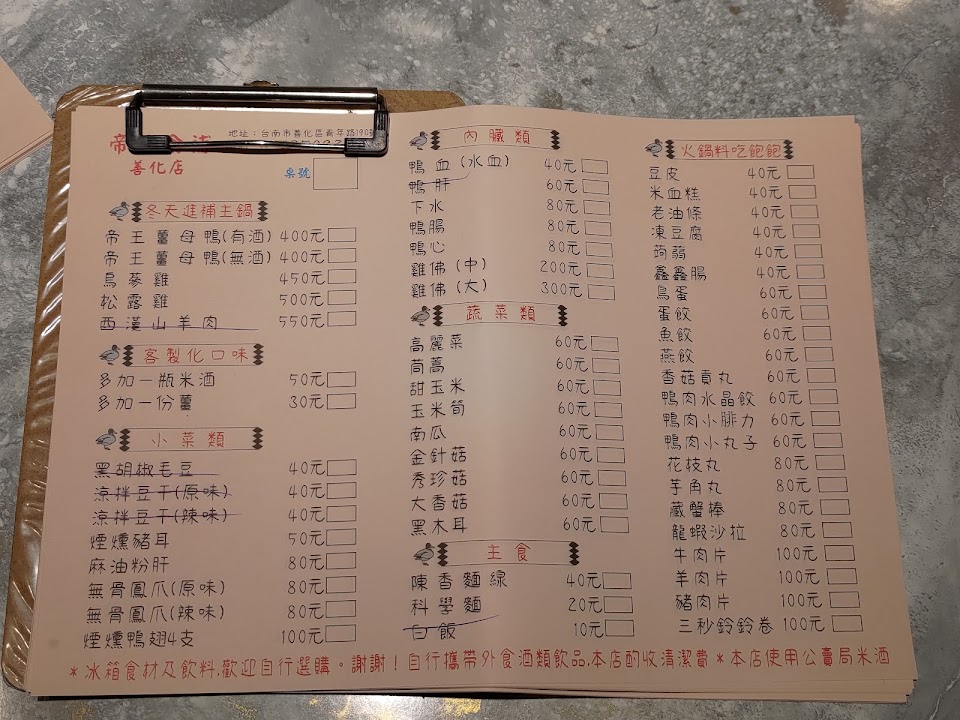 地址：台南市善化區青年路190號
善化店
桌號
冬天進補主鍋
帝王薑母鴨(有酒) 400元
帝王薑母鴨(無酒) 400元
烏蔘雞 450元
松露雞 500元
西漢山羊肉 550元
客製化口味
多加一瓶米酒 50元
多加一份薑 30元
小菜類
黑胡椒毛豆 40元
涼拌豆干(原味) 40元
涼拌豆干(辣味) 40元
煙燻豬耳 50元
麻油粉肝 80元
無骨鳳爪(原味) 80元
無骨鳳爪(辣味) 80元
煙燻鴨翅4支 100元
內臟類
鴨血(水血) 40元
鴨肝 60元
下水 80元
鴨腸 80元
鴨心 80元
雞佛(中) 200元
雞佛(大) 300元
蔬菜類
高麗菜 60元
茼蒿 60元
甜玉米 60元
玉米筍 60元
南瓜 60元
金針菇 60元
秀珍菇 60元
大香菇 60元
黑木耳 60元
主食
陳香麵線 40元
科學麵 20元
白飯 10元
火鍋料吃飽飽
豆皮 40元
米血糕 40元
老油條 40元
凍豆腐 40元
蒟蒻 40元
鑫鑫腸 40元
鳥蛋 60元
蛋餃 60元
魚餃 60元
燕餃 60元
香菇貢丸 60元
鴨肉水晶餃 60元
鴨肉小腓力 60元
鴨肉小丸子 60元
花枝丸 80元
芋角丸 80元
藏蟹棒 80元
龍蝦沙拉 80元
牛肉片 100元
羊肉片 100元
豬肉片 100元
三秒鈴鈴卷 100元
*冰箱食材及飲料,歡迎自行選購。謝謝！自行攜帶外食酒類飲品,本店酌收清潔費*本店使用公賣局米酒